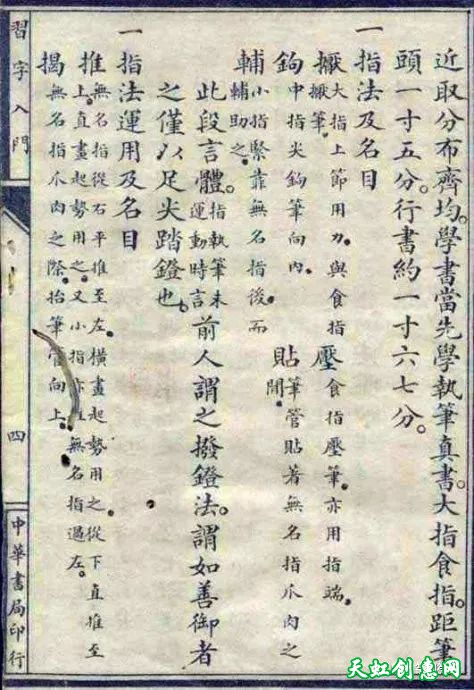 近取分布齊均。學書當先學執筆真書。大指食指。距筆
頭一寸五分。行書約一寸六七分。
一 指法及名目
擫 大指上節用力。與食指
擫筆。
壓 食指壓筆。亦用指端。
鉤 中指尖鉤筆向內。
貼 筆管貼著無名指爪肉之
間。
輔 小指緊靠無名指後。而
輔助之。
此段言體。指執筆未運動時言 前人謂之撥鐙法。謂如善御者
之僅以足尖踏鐙也。
一 指法運用及名目
推 無名指從右平推至左。橫畫起勢用之。從下直推至
上。直畫起勢用之。又小指亦 無名指過左。
揭 無名指爪肉之際。抬筆管向上。
習字入門
四
中華書局印行
天虹创意网